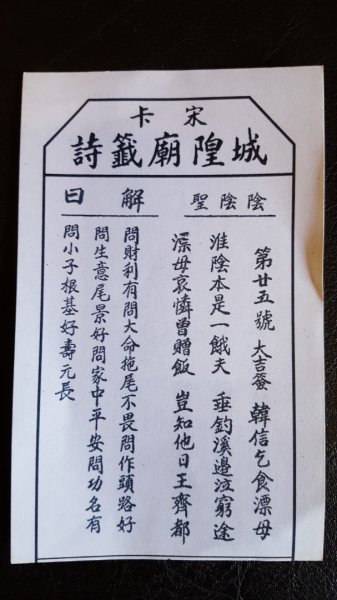 宋卡
城隍廟籤詩
聖陰陰
第廿五號 大吉簽 韓信乞食漂母
淮陰本是一餓夫 垂釣溪邊泣窮途
漂母哀憐曾贈飯 豈知他日王齊都
解曰
問財利有問大命拖尾不畏問作頭路好
問生意尾景好問家中平安問功名有
問小子根基好壽元長